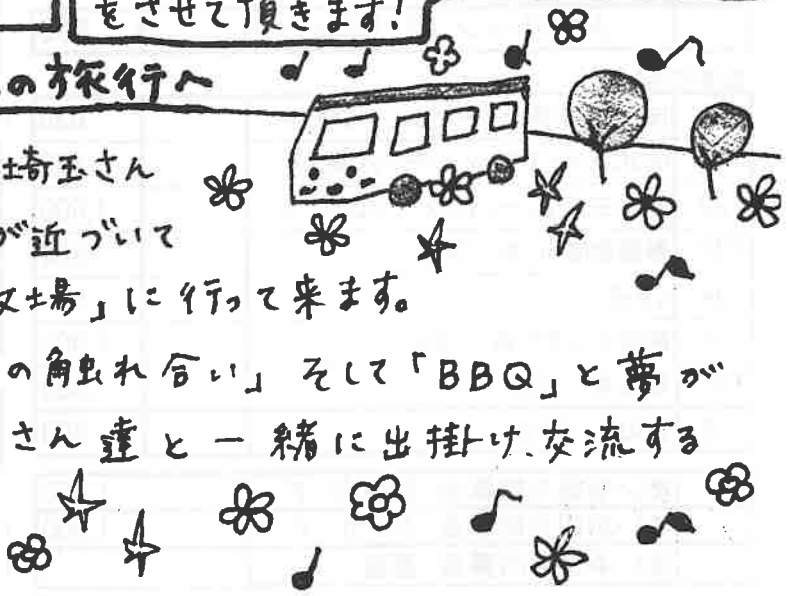 をさせて頂きます!
の旅行へ
埼玉さん
が近づいて
牧場」に行って来ます。
の触れ合い」そして「BBQ」と夢が
さん達と一緒に出掛け、交流する